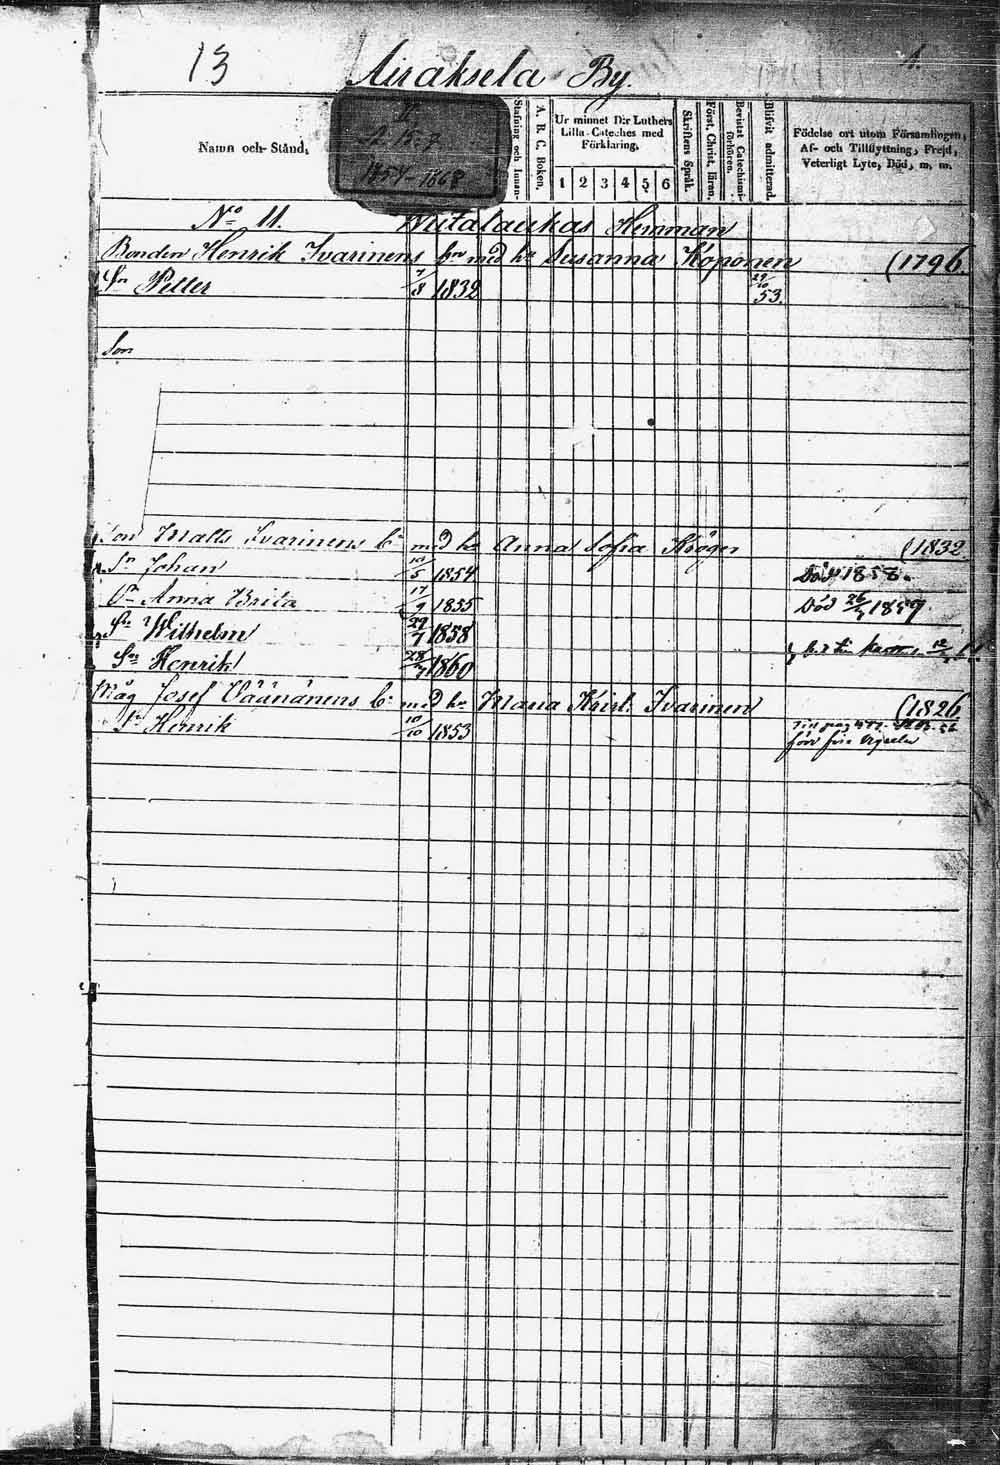 13 Airaksela By. 1.
1854-1868
Namn och Stånd,
Stafning och Innan-
A. B. C. Boken,
Ur minnet D:r Luthers
Lilla Cateches med
Förklaring,
1 2 3 4 5 6
Skriftens Språk.
Först. Christ. läran.
Bevistat Catechismi-
förhören.
Blifvit admitterad.
Födelse ort utom Församlingen,
Af- och Tillflyttning, Frejd,
Veterligt Lyte, Död, m. m.
No 11. Hemman
Bonden Henrik Ivarinens med Susanna Koponen (1796.
Sn Petter 7/8 1832 29/10 53.
Son
Son Matts Ivarinens b: med Anna Sofia Kröger (1832
Sn Johan 10/5 1854 Död 1858.
Dr Anna Brita 17/9 1855 Död 26/7 1859.
Sn Wilhelm 29/7 1858
Sn Henrik 28/7 1860
Måg Josef Väänänens b: med Maria Krist. Ivarinen (1826
Sn Henrik 10/10 1853